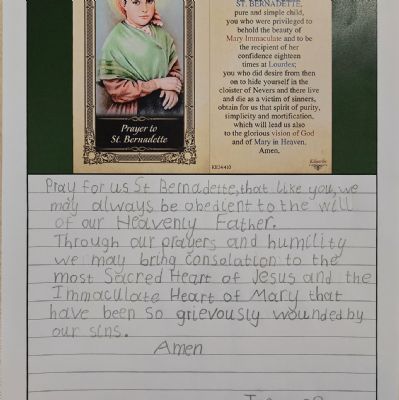 Prayer to
St. Bernadette
ST. BERNADETTE,
pure and simple child,
you who were privileged to
behold the beauty of
Mary Immaculate and to be
the recipient of her
confidence eighteen
times at Lourdes;
you who did desire from then
on to hide yourself in the
cloister of Nevers and there live
and die as a victim of sinners,
obtain for us that spirit of purity,
simplicity and mortification,
which will lead us also
to the glorious vision of God
and of Mary in Heaven.
Amen.
Pray for us St Bernadette, that like you, we
may always be obedient to the will
of our Heavenly Father.
Through our prayers and humility
we may bring consolation to the
most Sacred Heart of Jesus and the
Immaculate Heart of Mary that
have been so grievously wounded by
our sins.
Amen